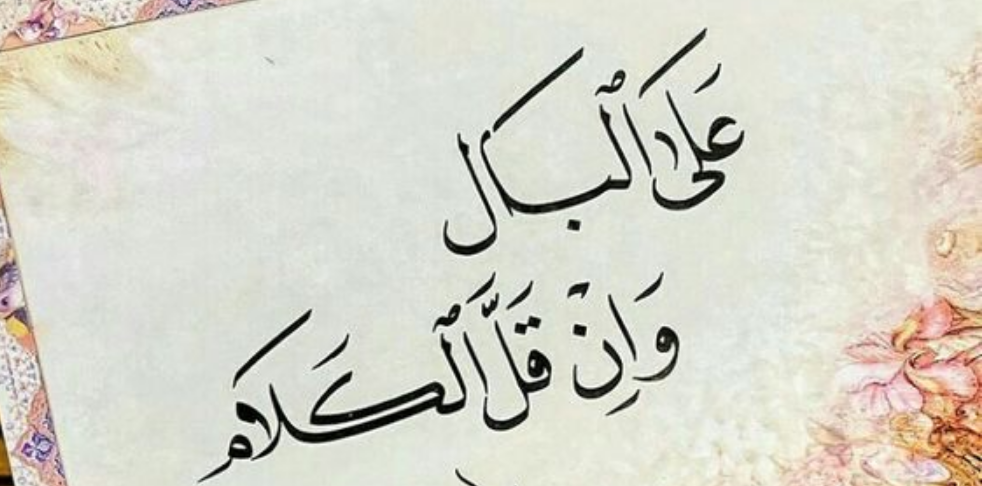 عَلَى ٱلْبَال
وَإِنْ قَلَّ ٱلْكَلَام